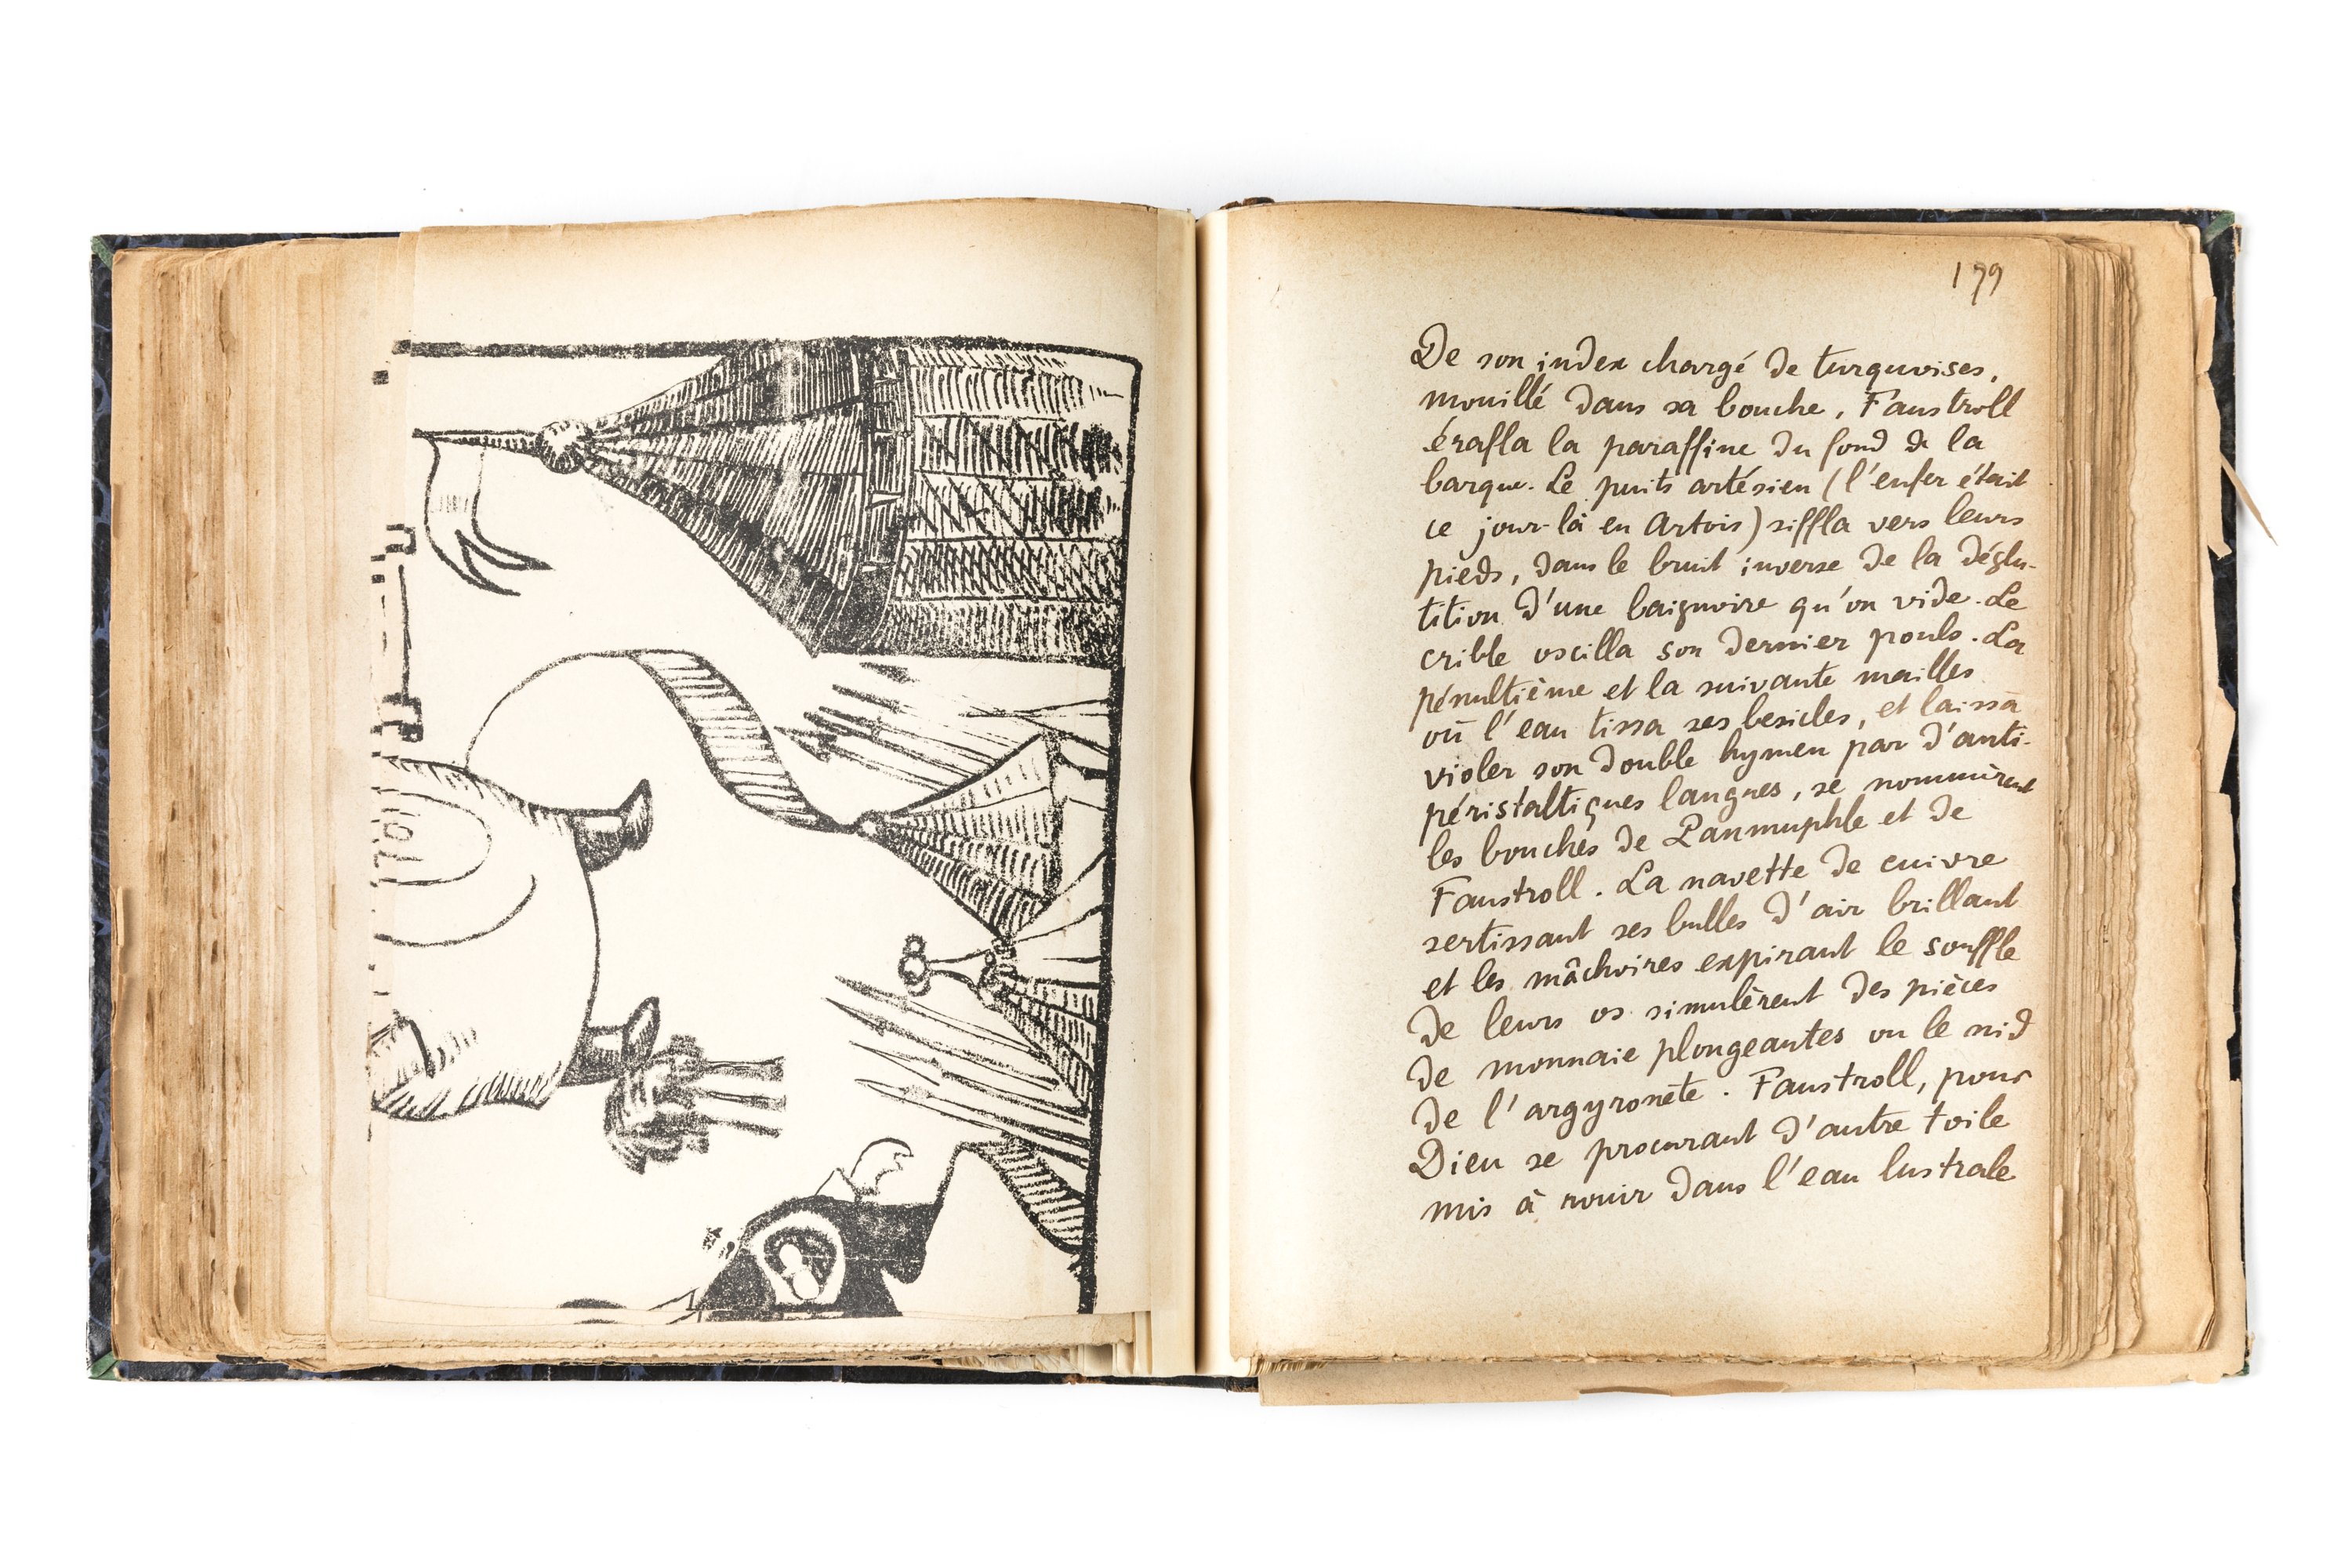 179
De son index chargé de turquoises,
mouillé dans sa bouche, Faustroll
érafla la paraffine du fond de la
barque. Le puits artésien (l'enfer était
ce jour-là en Artois) siffla vers leurs
pieds, dans le bruit inverse de la déglu-
tition d'une baignoire qu'on vide. Le
crible oscilla son dernier pouls. La
pénultième et la suivante mailles
où l'eau tissa ses besicles, et laissa
violer son double hymen par d'anti-
péristaltiques langues, se nommèrent
les bouches de Panmuphle et de
Faustroll. La navette de cuivre
sertissant ses bulles d'air brillant
et les mâchoires expirant le souffle
de leurs os simulèrent des pièces
de monnaie plongeantes ou le nid
de l'argyronète. Faustroll, pour
Dieu se procurant d'autre toile
mis à rouir dans l'eau lustrale